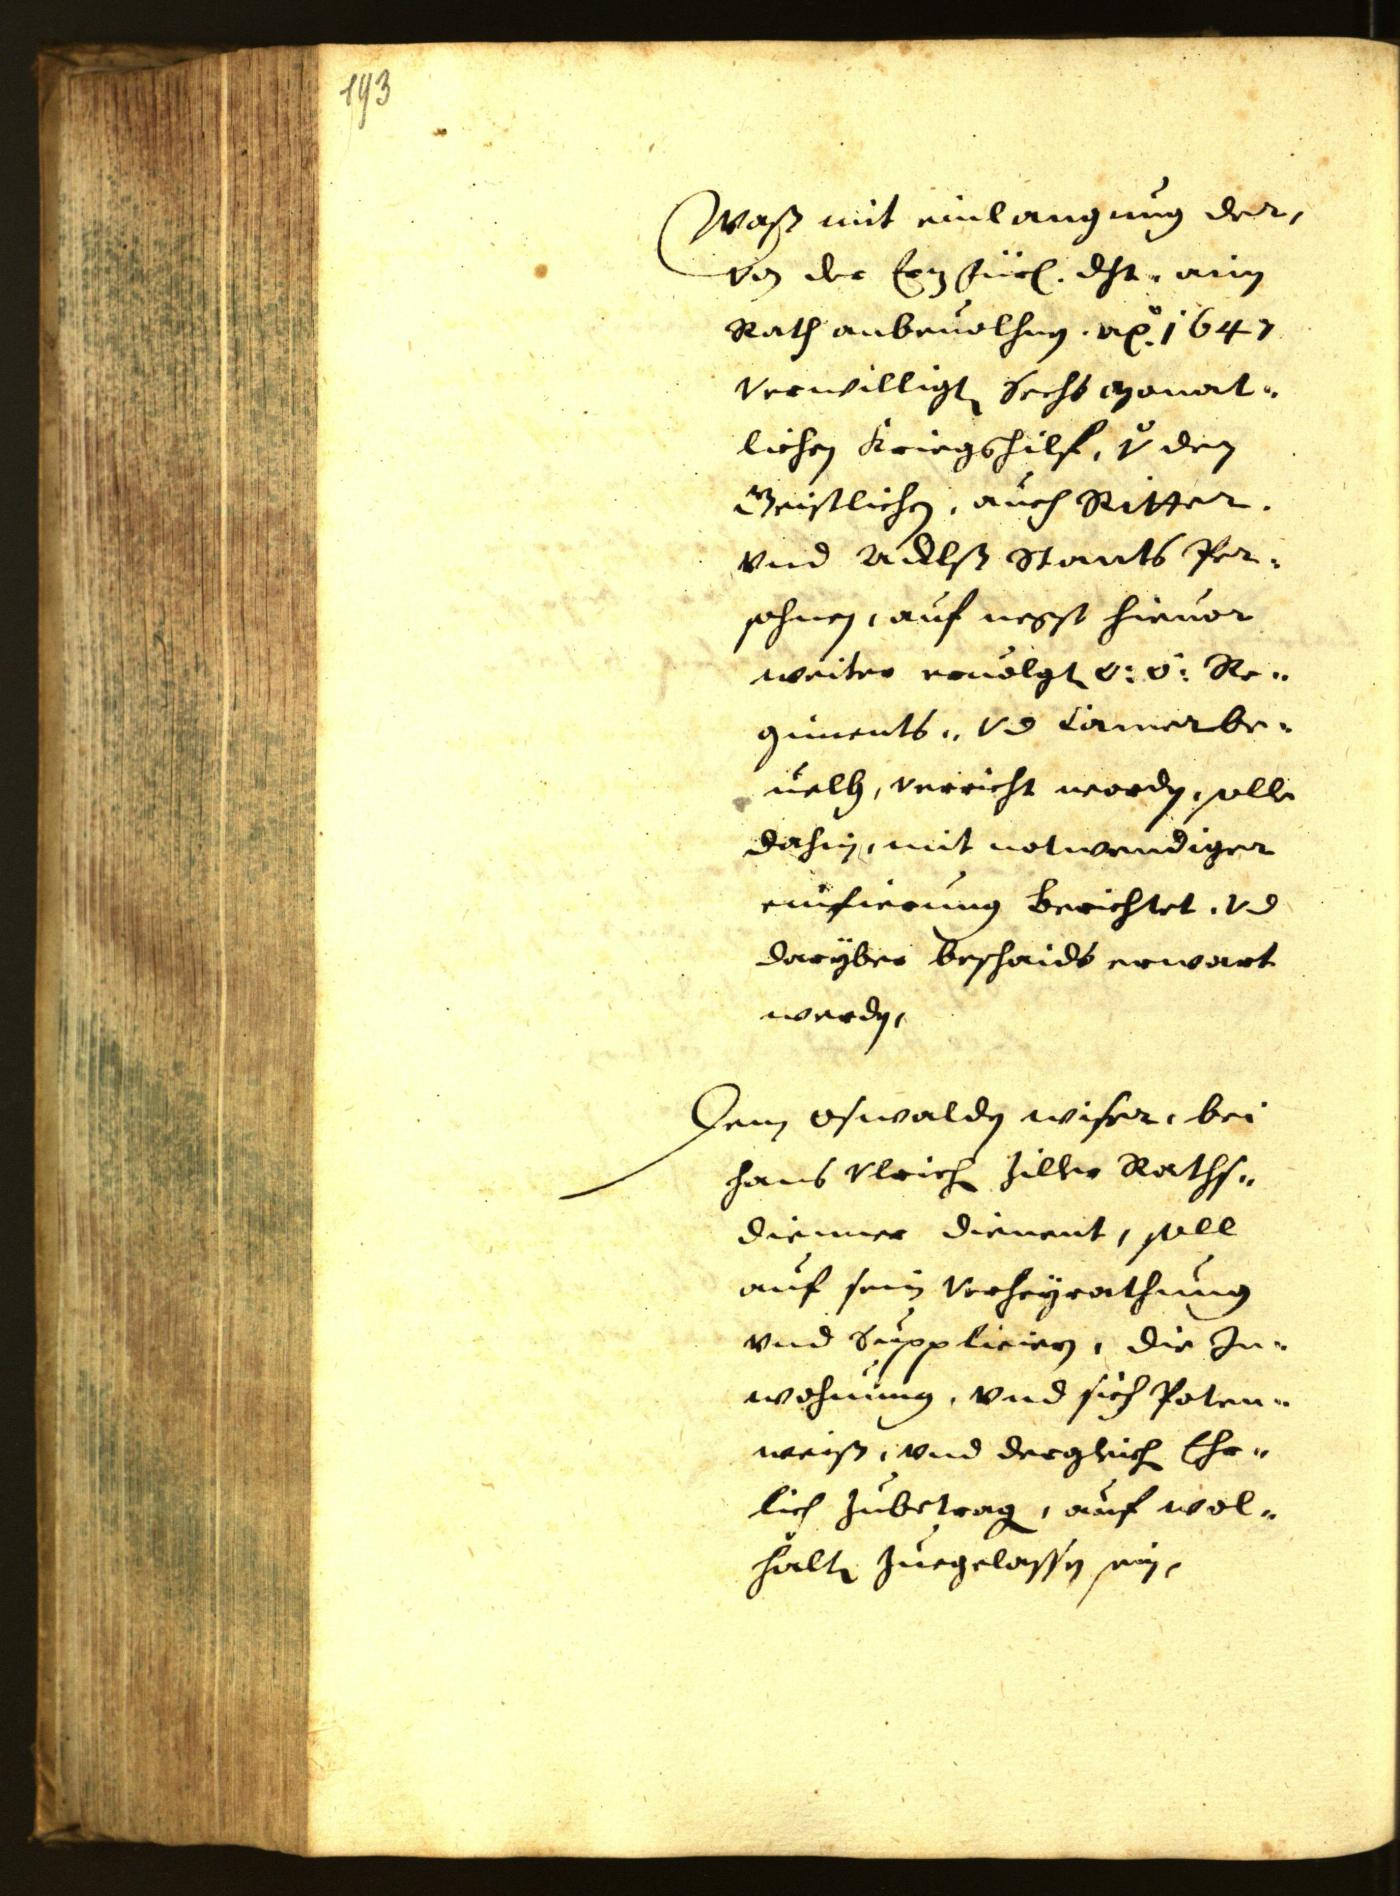 193
Waß mit einlangung der,
von der Erzfürl. Dht. aim
Rath anbeuolhnen. aō. 1647
verwilligten Sechs monat-
lichen Kriegshilf, v̊ den
Geistlichen, auch Ritter.
vnd Adlß Stants Per-
sohnen, auf negst hieuor
weiter eruolgten o: ö: Re-
giments- vnd Camerbe-
uelh, verricht worden, solle
dahin, mit notwendiger
einfierung berichtet. vnd
darÿber beschaids erwart
werden,
Dem Oswalden wiser, bei
Hans Vlrichen Ziller Raths-
dienner dienent, soll
auf sein Verheÿrathung
vnd Supplicien, die In-
wohnung, vnd sich Poten-
weiß, vnd dergleichen Ehr-
lich zubetragen, auf wol-
halten zuegelassen sein,